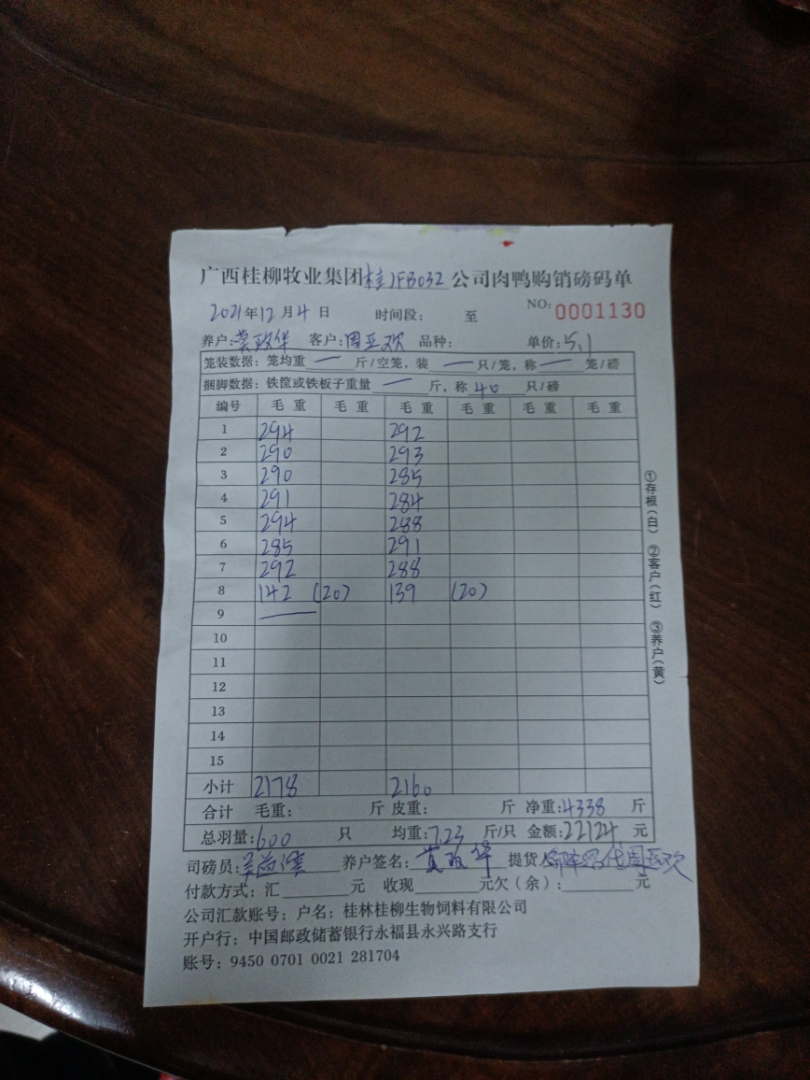 广西桂柳牧业集团桂JFB032公司肉鸭购销磅码单
2021年12月4日 时间段: 至 NO: 0001130
养户: 客户:周玉欢 品种: 单价:5.1
笼装数据: 笼均重 — 斤/空笼, 装 — 只/笼, 称 — 笼/磅
捆脚数据: 铁筐或铁板子重量 — 斤, 称 40 只/磅
编号 毛重 毛重 毛重 毛重 毛重 毛重
1 294 292
2 290 293
3 290 285
4 291 284
5 294 288
6 285 291
7 292 288
8 142 (20) 139 (20)
9 —
10
11
12
13
14
15
小计 2178 2160
合计 毛重: 斤 皮重: 斤 净重:4338 斤
总羽量:600 只 均重:7.23 斤/只 金额:22124 元
司磅员: 养户签名: 提货人 代周玉欢
付款方式: 汇 元 收现 元欠(余): 元
公司汇款账号: 户名: 桂林桂柳生物饲料有限公司
开户行: 中国邮政储蓄银行永福县永兴路支行
账号: 9450 0701 0021 281704
①存根(白) ②客户(红) ③养户(黄)